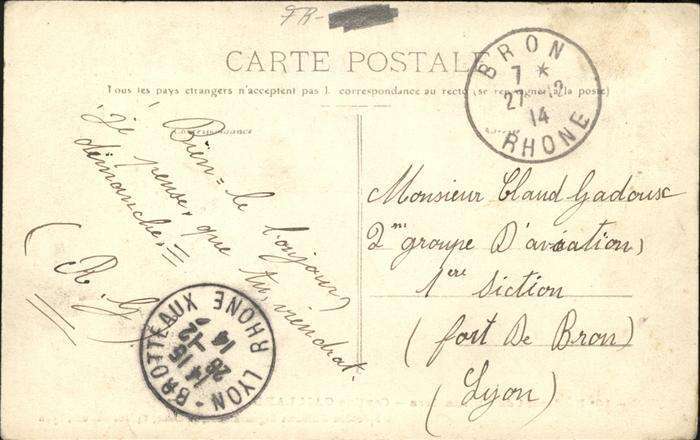 FR-
CARTE POSTALE
Tous les pays étrangers n'acceptent pas la correspondance au recto (se renseigner à la poste)
Correspondance
BRON
7 *
27 12
14
RHONE
Bien = le bonjour
je pense, que tu, viendrat.
dimanche. =
( R. G )
Monsieur Claud Gadousc
2me groupe D'aviation)
1ere Siction
( fort De Bron)
( Lyon )
LYON - BROTTEAUX
14 15
26 -12
14
RHONE